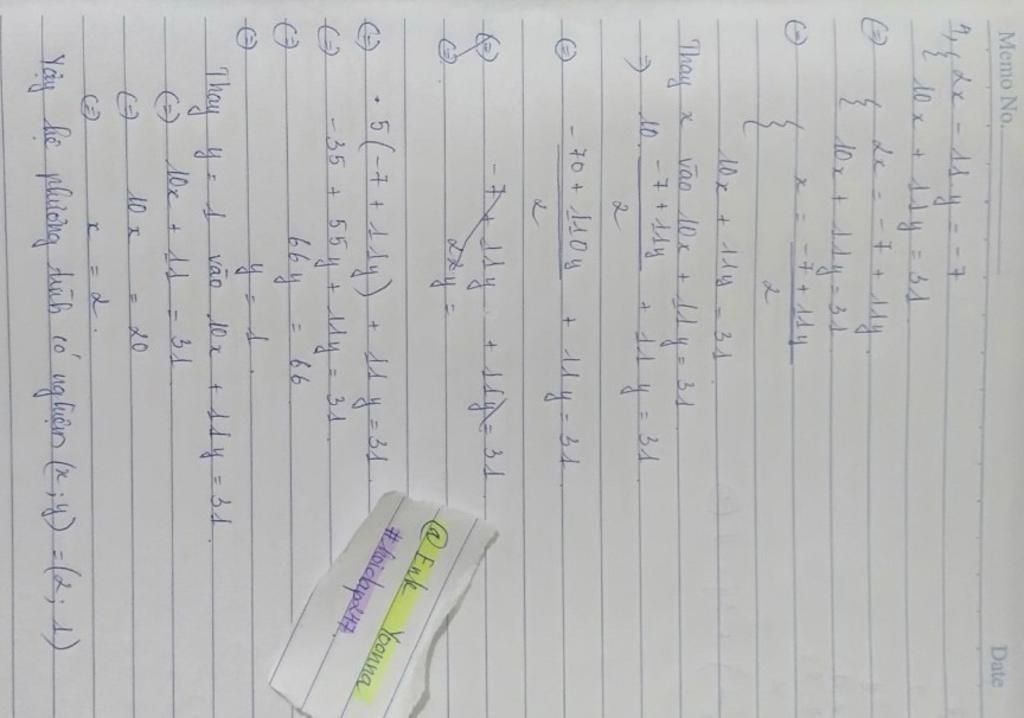 Memo No.
Date
2x - 11y = -7
10x + 11y = 31
(=) { 2x = -7 + 11y
{ 10x + 11y = 31
(=) { x = -7 + 11y / 2
10x + 11y = 31
Thay x vào 10x + 11y = 31
=) 10. -7 + 11y / 2 + 11y = 31
(=) -70 + 110y / 2 + 11y = 31
(=) -7 + 11y + 11y = 31
(=) 2xy =
(=) 5(-7 + 11y) + 11y = 31
(=) -35 + 55y + 11y = 31
(=) 66y = 66
(=) y = 1
Thay y = 1 vào 10x + 11y = 31
(=) 10x + 11 = 31
(=) 10x = 20
(=) x = 2.
Vậy hệ phương trình có nghiệm (x; y) = (2; 1)
@Enk Yoonna
#hoidap247